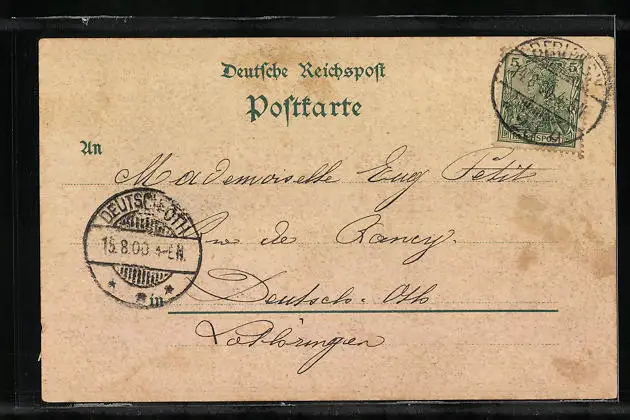 Deutsche Reichspost
Postkarte
5 5
REICHSPOST
BERLIN
An
Mademoiselle Eug Petit
de Rancy.
DEUTSCH-OTH
15.8.00 4-5N.
* * in *
Deutsch-Oth
Lothringen